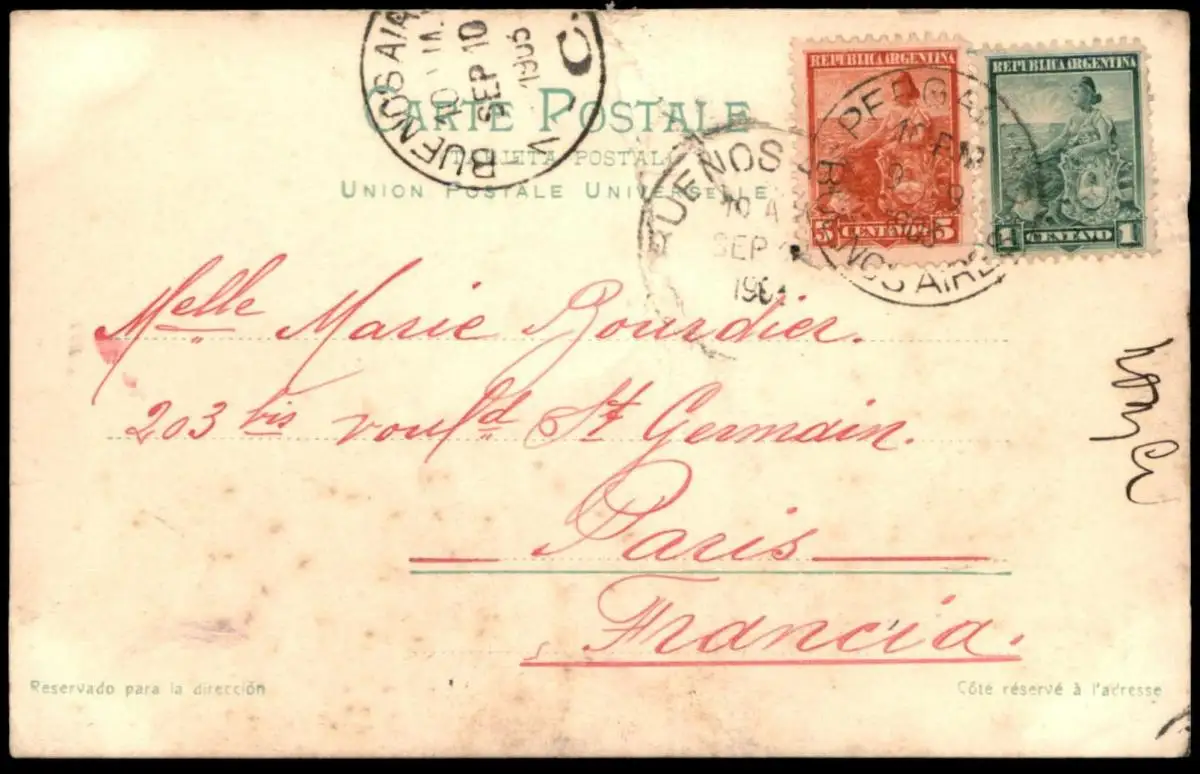 BUENOS AIRES
10
SEP 10
1905
V C.
CARTE POSTALE
TARJETA POSTAL
UNION POSTALE UNIVERSELLE
REPUBLICA ARGENTINA
5 CENTAVOS 5
REPUBLICA ARGENTINA
1 CENTAVO 1
BUENOS
10 A
SEP
BUENOS AIRES
1905
Melle Marie Bourdier.
203 bis vould St Germain.
Paris
Francia.
Reservado para la dirección
Côté réservé à l'adresse